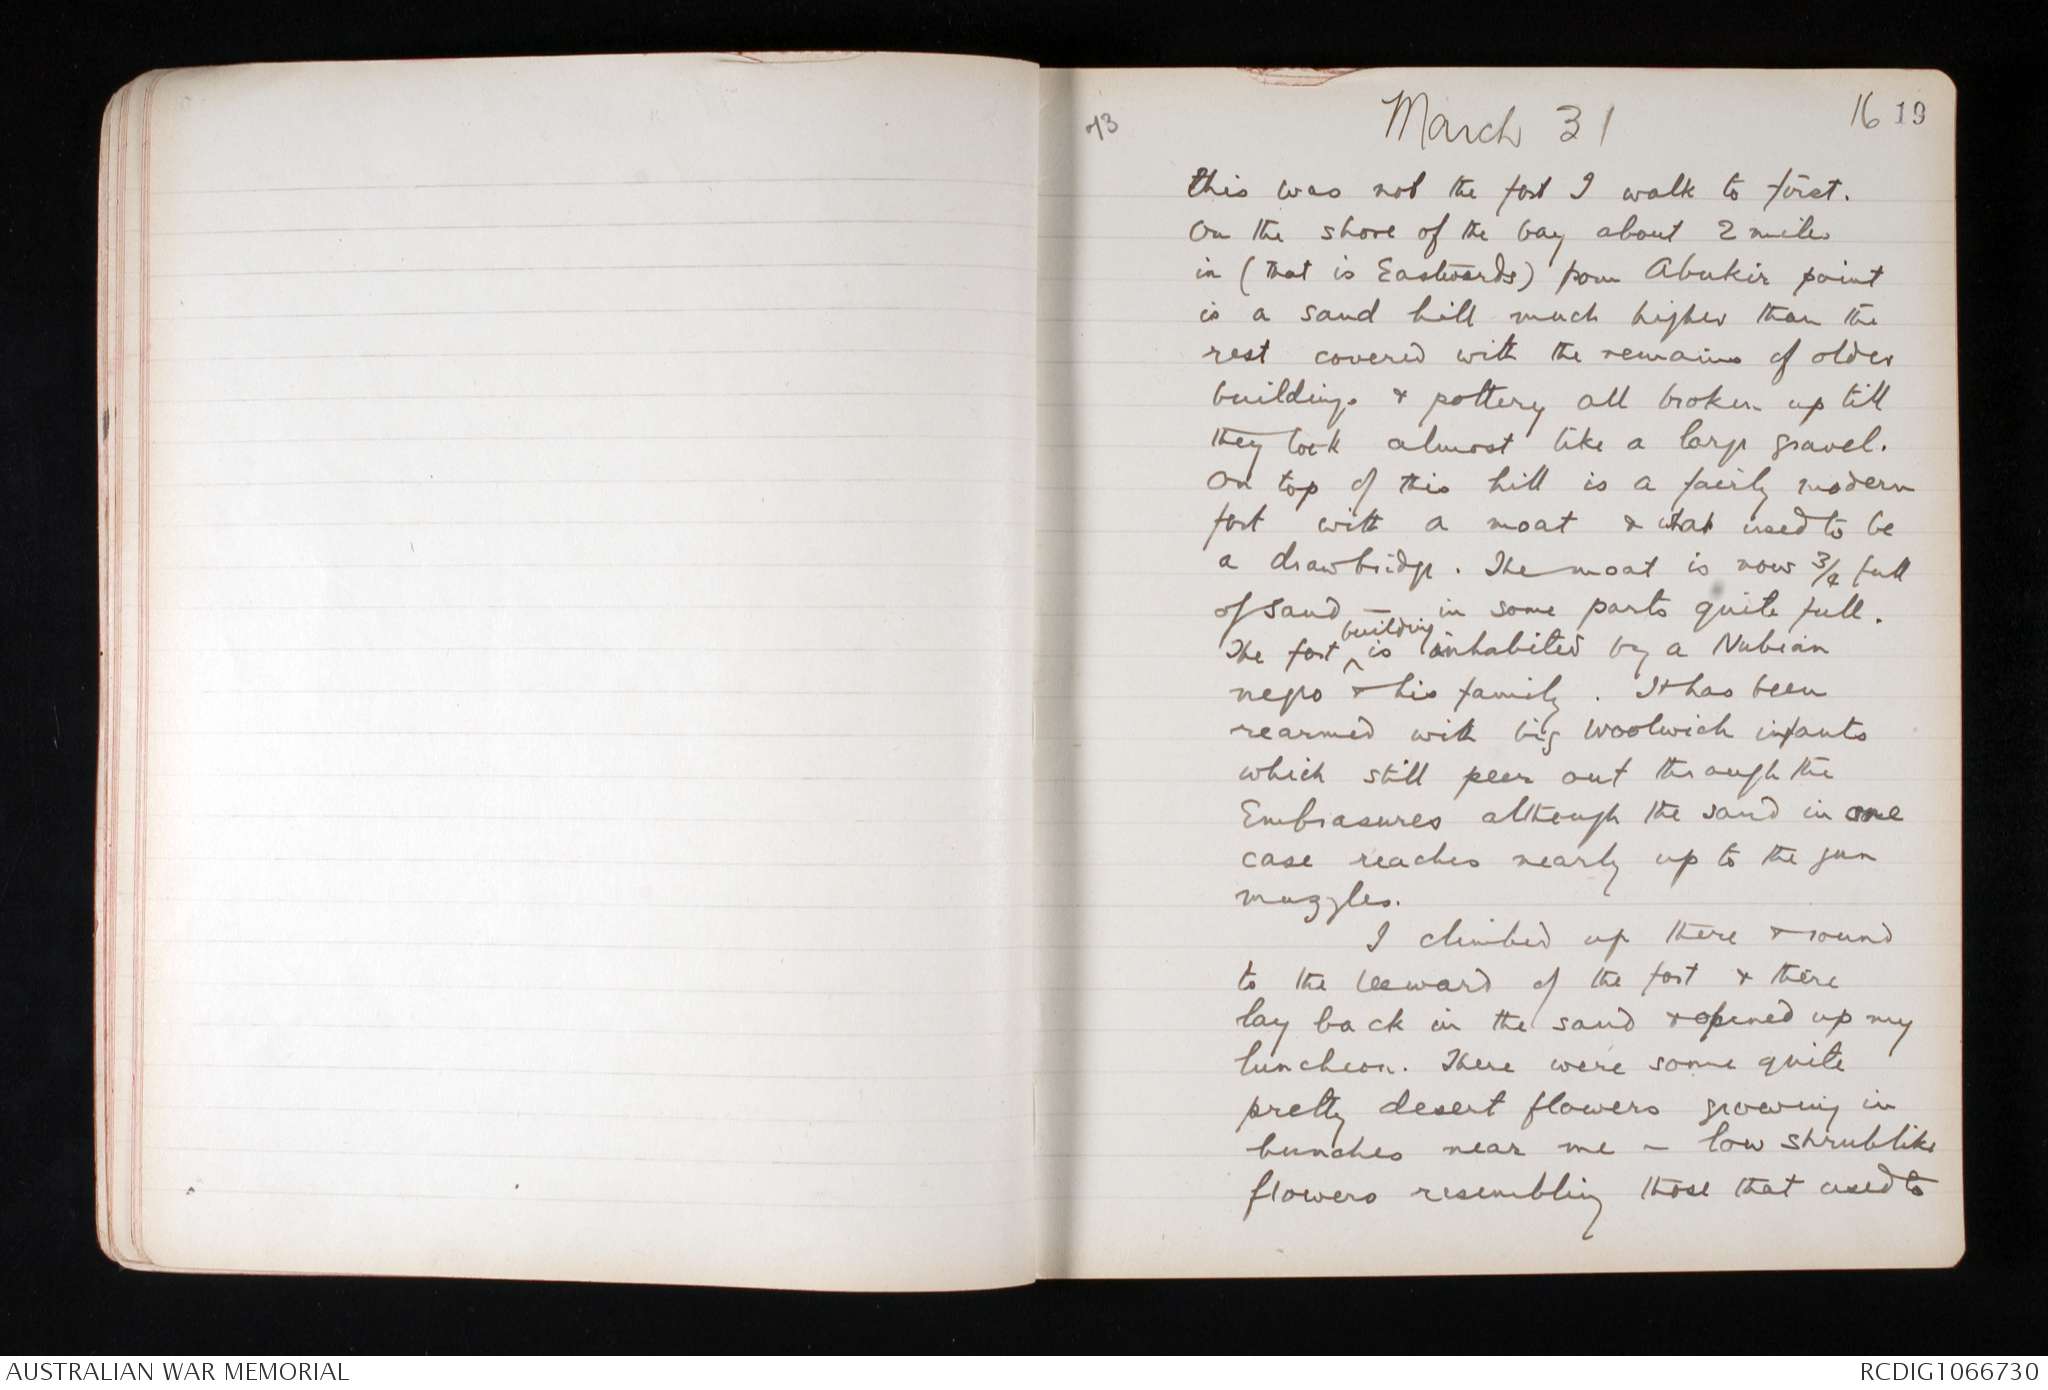 73
March 31
16 19
this was not the fort I walk to first.
On the shore of the bay about 2 miles
in (that is Eastwards) from Abukir point
is a sand hill much higher than the
rest covered with the remains of older
buildings & pottery all broken up till
they look almost like a large gravel.
On top of this hill is a fairly modern
fort with a moat & what used to be
a drawbridge. The moat is now 3/4 full
of sand – in some parts quite full.
building
The fort ^ is inhabited by a Nubian
negro & his family. It has been
rearmed with big Woolwich infants
which still peer out through the
Embrasures although the sand in one
case reaches nearly up to the gun
muzzles.
I climbed up there & round
to the leeward of the fort & there
lay back in the sand & opened up my
luncheon. There were some quite
pretty desert flowers growing in
bunches near me – low shrublike
flowers resembling those that used to
AUSTRALIAN WAR MEMORIAL
RCDIG1066730